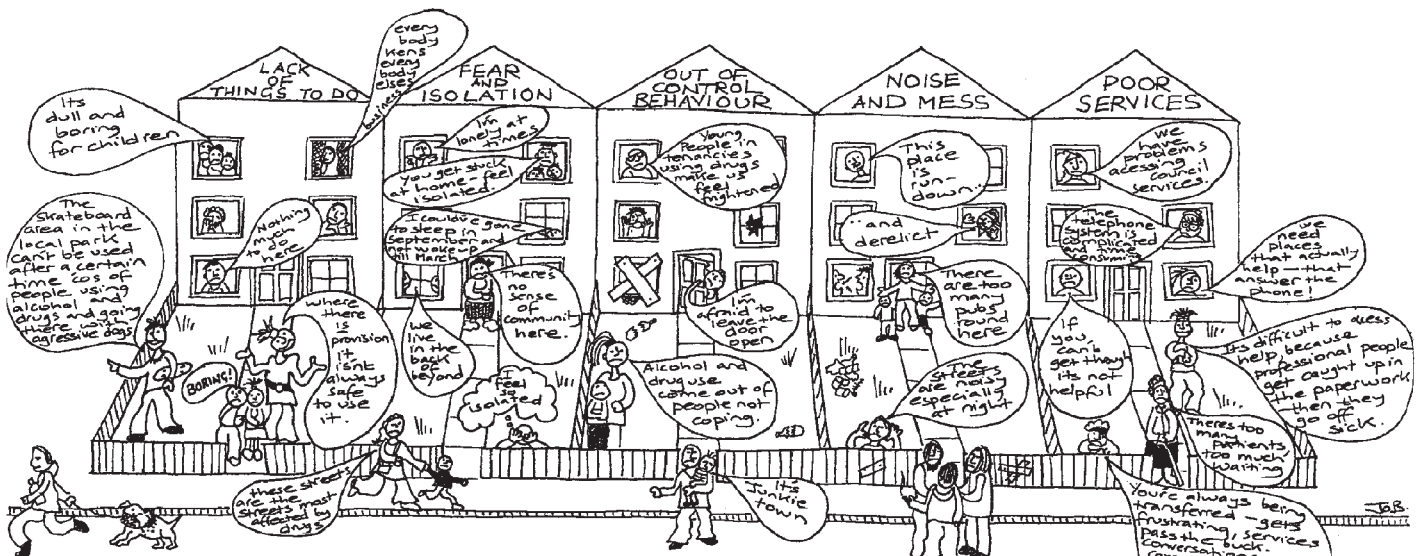 LACK
OF
THINGS TO DO
every
body
kens
every
body
elses
business
Its
dull and
boring
for children
The
skateboard
area in the
local park
can't be used
after a certain
time cos of
people using
alcohol and
drugs and going
there with
agressive dogs
Nothing
much
to do
here
BORING!
where
there
is
provision
it
isnt
always
safe
to use
it.
FEAR
AND
ISOLATION
I'm
lonely at
times
You get stuck
at home – feel
isolated.
I could've gone
to sleep in
September and
not woke up
till March
There's
no
sense
of
community
here.
we
live
in the
back
of
beyond
I
feel
so
isolated
these streets
are the
streets most
affected by
drugs
OUT OF
CONTROL
BEHAVIOUR
Young
People in
tenancies
using drugs
make us
feel
frightened
I'm
afraid to
leave the
door
open
Alcohol and
drug use
come out of
people not
coping.
It's
Junkie
town
NOISE
AND MESS
This
place
is
run-
down.
..and
derelict
There
are too
many
pubs
round
here
Streets
are noisy
especially
at night
POOR
SERVICES
we
have
problems
acessing
council
services.
The
telephone
system is
complicated
and time
consuming
we
need
places
that actually
help – that
answer the
phone!
If
you
can't
get though
its not
helpful
Its difficult to acess
help, because
professional people
get caught up in
the paperwork
then they
go off
sick.
Theres too
many
patients
too much
waiting
You're always being
transferred – gets
frustrating, services
pass the buck.
conversations
JoB.